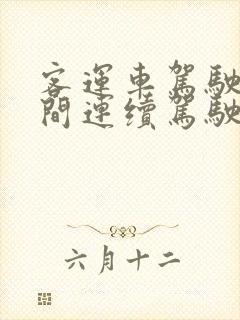 客運車駕駛
間連續駕駛
六月十二